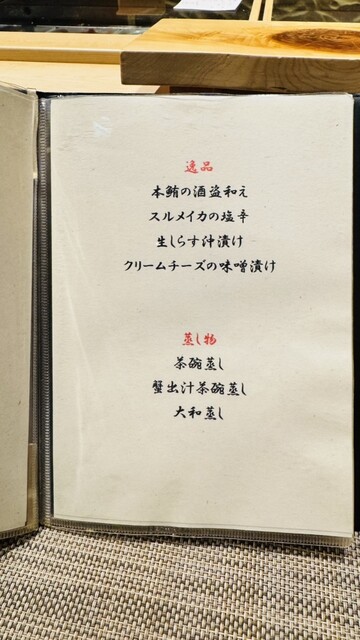 逸品
本鮪の酒盗和え
スルメイカの塩辛
生しらす沖漬け
クリームチーズの味噌漬け
蒸し物
茶碗蒸し
蟹出汁茶碗蒸し
大和蒸し